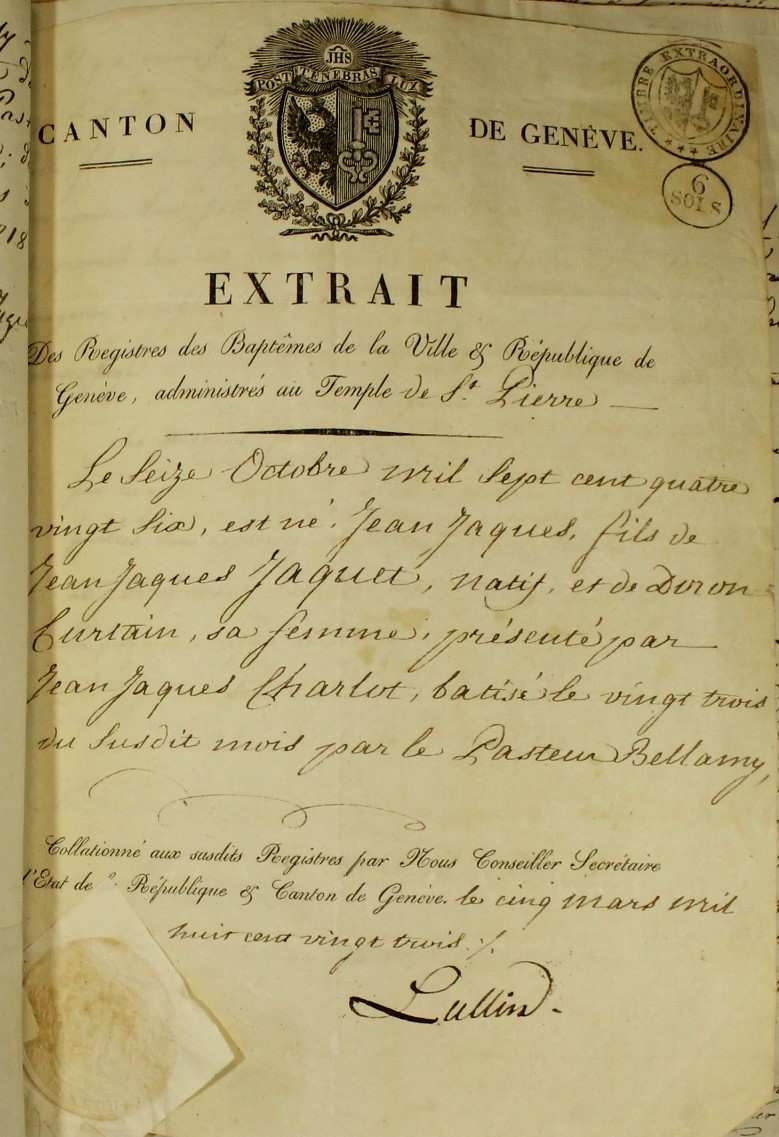 JHS
POST TENEBRAS LUX
CANTON DE GENÈVE.
TIMBRE EXTRAORDINAIRE
6
SOLS
EXTRAIT
Des Registres des Baptêmes de la Ville & République de
Genève, administrés au Temple de St. Pierre
Le Seize Octobre mil Sept cent quatre
vingt Six, est né Jean Jaques, fils de
Jean Jaques Jaquet, natif, et de
Curtain, sa femme, présenté par
Jean Jaques Charlot, batisé le vingt trois
du Susdit mois par le Pasteur Bellamy,
Collationné aux susdits Registres par Nous Conseiller Secrétaire
l'Etat de République & Canton de Genève. le cinq mars mil
huit cent vingt trois ./.
Lullin